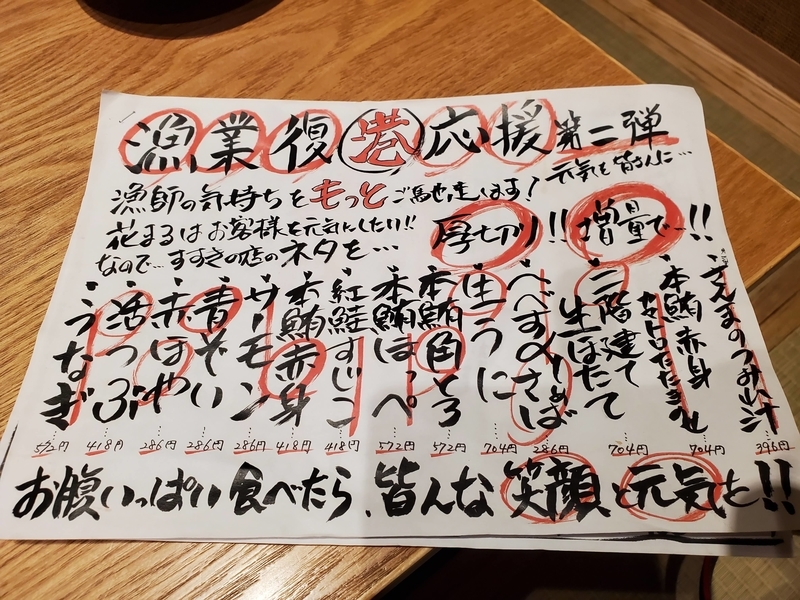 漁業復港応援第二弾
漁師の気持ちをもっとご馳走します! 元気を皆さんに…
花まるはお客様を元気にしたい!! 厚切り!! 増量で…!!
なので…すすきの店のネタを…
本鮪赤身 704円
二階建て生ほたて 704円
286円
生うに 704円
本鮪角とろ 572円
本鮪ほっぺ 572円
紅鮭すじこ 418円
本鮪赤身 418円
サーモン 286円
青そい 286円
赤ほや 286円
活つぶ 418円
うなぎ 572円
396円
お腹いっぱい食べたら、皆んな笑顔と元気を!!